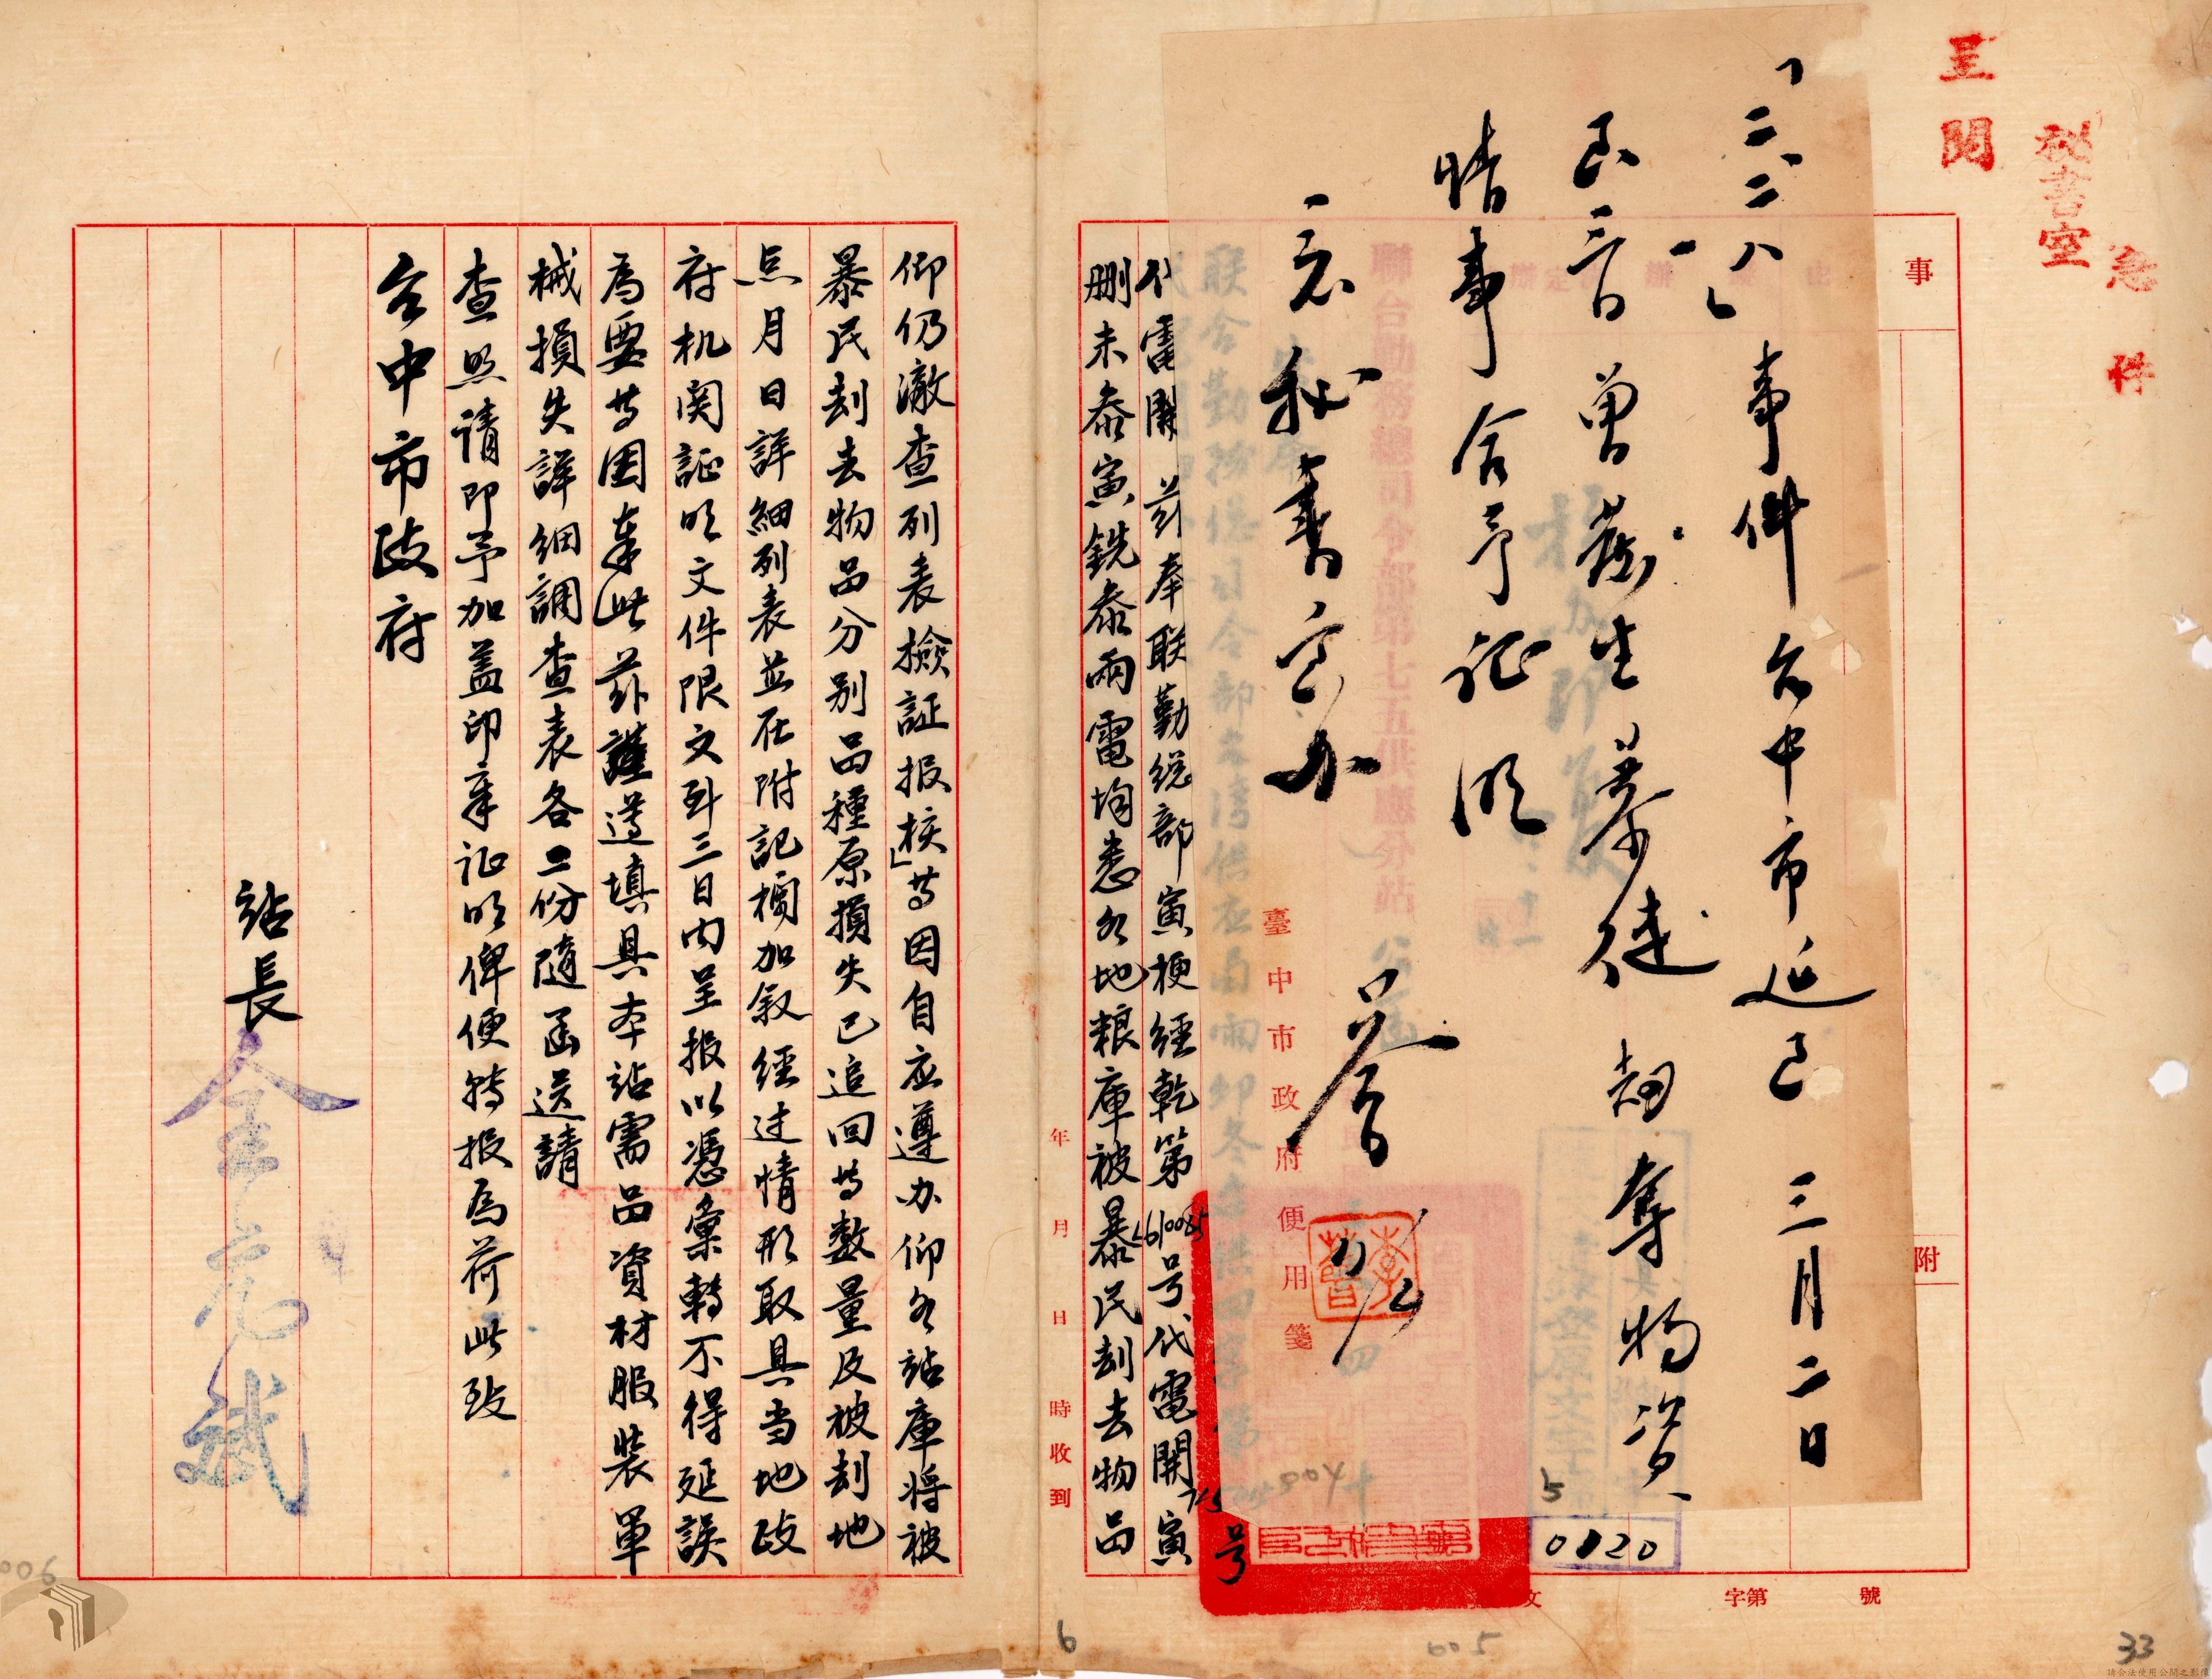 急件
秘書室
呈閱
事
附
「二、二八」事件台中市延已三月二日
至三日曾發生暴徒劫奪物資
情事合予証明
一、交秘書室办
臺中市政府便用箋
聯合勤務總司令部第七五供應分站公函
代電開茲奉联勤総部寅梗經乾第61008号代電開寅
刪未泰寅銑泰兩電均悉各地粮庫被暴民刦去物品
年 月 日 時收到
仰仍澈查列表檢証报核」等因自应遵办仰各站庫将被
暴民刦去物品分别品種原損失已追回等数量及被刦地
点月日詳細列表並在附記欄加叙經过情形取具当地政
府机関証明文件限文到三日内呈报以憑彙轉不得延誤
為要等因奉此茲謹遵填具本站需品資材服裝軍
械損失詳細調查表各二份隨函送請
查照请即予加盖印章证明俾便转报為荷此致
台中市政府
站長
0120
字第 號
文
号
6
605
33
006